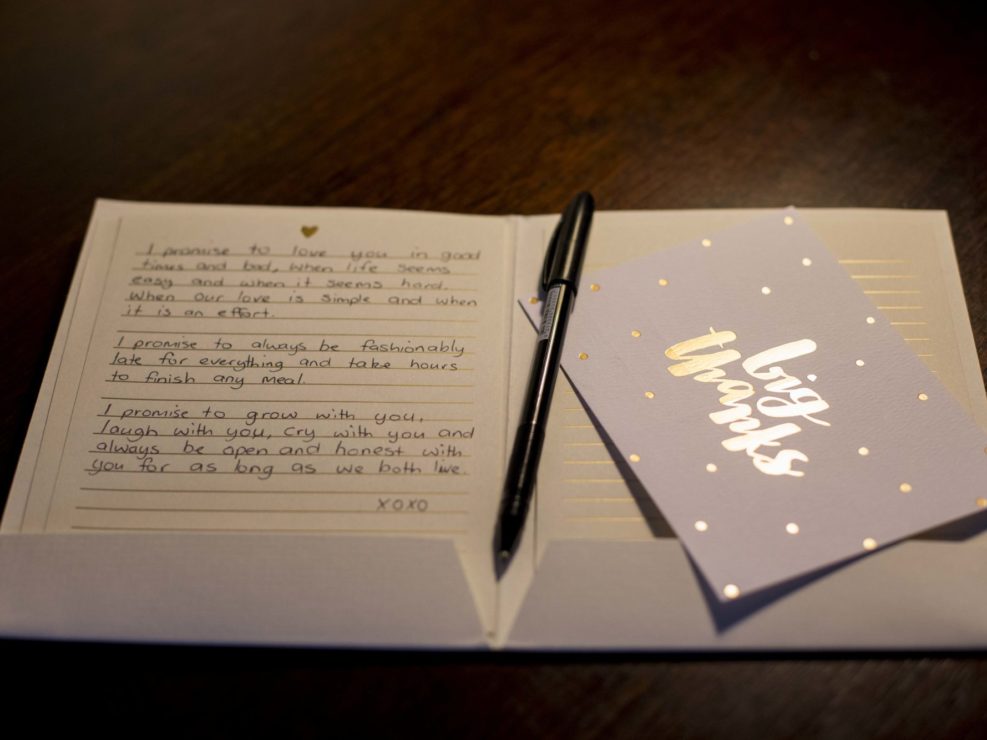 I promise to love you in good
times and bad, when life seems
easy and when it seems hard.
When our love is simple and when
it is an effort.
I promise to always be fashionably
late for everything and take hours
to finish any meal.
I promise to grow with you,
laugh with you, cry with you and
always be open and honest with
you for as long as we both live.
xoxo
big
thanks